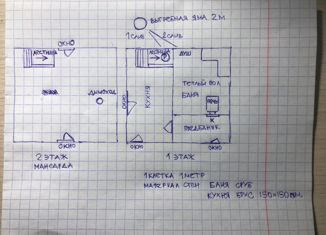 ВЫГРЕБНАЯ ЯМА 2М
1 СЛИВ
2 СЛИВ
ЛЕСТНИЦА
ОКНО
ЛЕСТНИЦА
ДУШ
ДЫМОХОД
ОКНО
КУХНЯ
ТЕПЛЫЙ ПОЛ
БАНЯ
ПЕЧЬ
К
ПРЕДБАННИК
ОКНО
ОКНО
ОКНО
2 ЭТАЖ
МАНСАРДА
1 ЭТАЖ
1 КЛЕТКА 1 МЕТР
МАТЕРИАЛ СТЕН БАНЯ СРУБ
КУХНЯ БРУС 150×150мм.